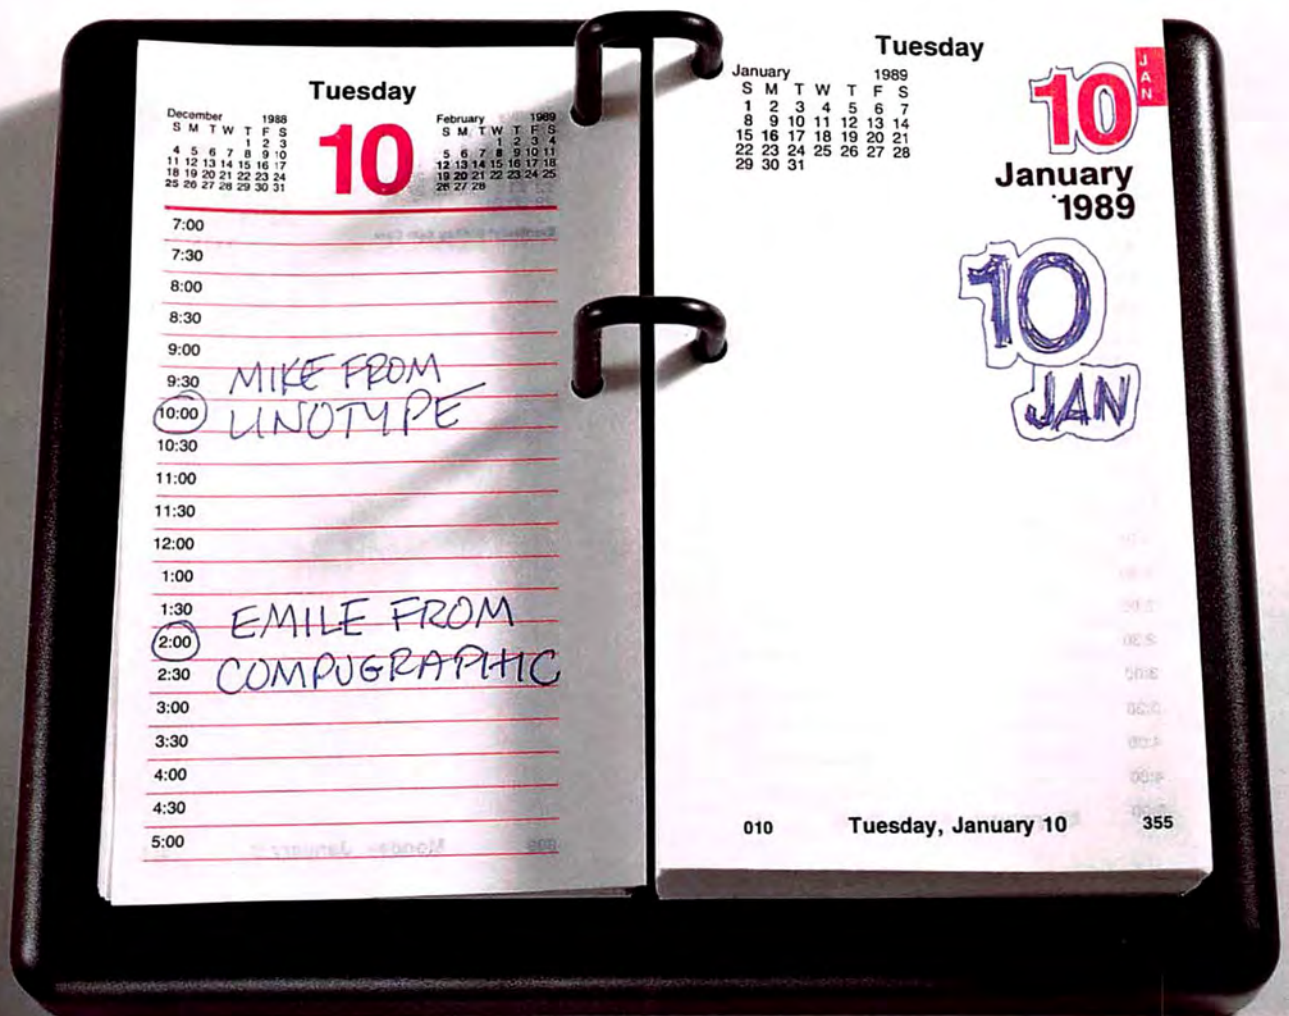 Tuesday
December 1988
S M T W T F S
1 2 3
4 5 6 7 8 9 10
11 12 13 14 15 16 17
18 19 20 21 22 23 24
25 26 27 28 29 30 31
10
February 1989
S M T W T F S
1 2 3 4
5 6 7 8 9 10 11
12 13 14 15 16 17 18
19 20 21 22 23 24 25
26 27 28
7:00
7:30
8:00
8:30
9:00
9:30 MIKE FROM
10:00 LINOTYPE
10:30
11:00
11:30
12:00
1:00
1:30 EMILE FROM
2:00
2:30 COMPUGRAPHIC
3:00
3:30
4:00
4:30
5:00
Tuesday
January 1989
S M T W T F S
1 2 3 4 5 6 7
8 9 10 11 12 13 14
15 16 17 18 19 20 21
22 23 24 25 26 27 28
29 30 31
10
JAN
January
1989
10
JAN
010 Tuesday, January 10 355